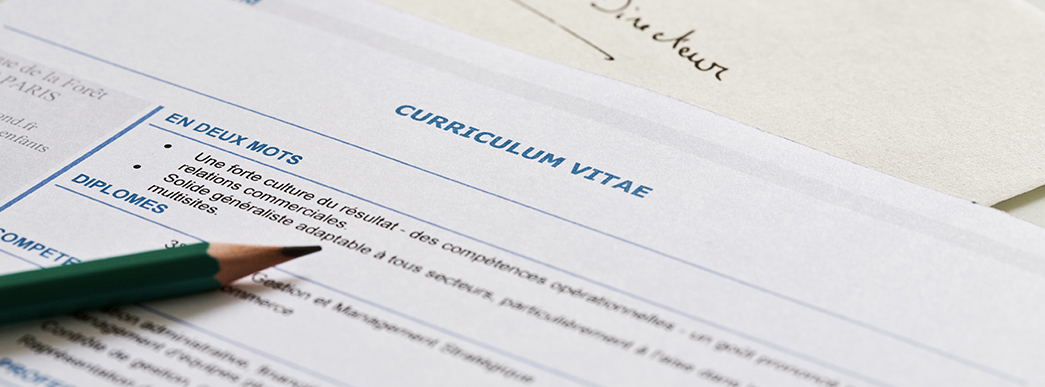 Directeur
CURRICULUM VITAE
de la Forêt
PARIS
ond.fr
enfants
EN DEUX MOTS
Une forte culture du résultat - des compétences opérationnelles - un goût prononcé
relations commerciales.
Solide généraliste adaptable à tous secteurs, particulièrement à l'aise dans
multisites.
DIPLOMES
Gestion et Management Stratégique
ommerce
COMPETE
ion administrative, financ
nagement d'équipes p
Contrôle de gestion,
Représentation d
PROFES